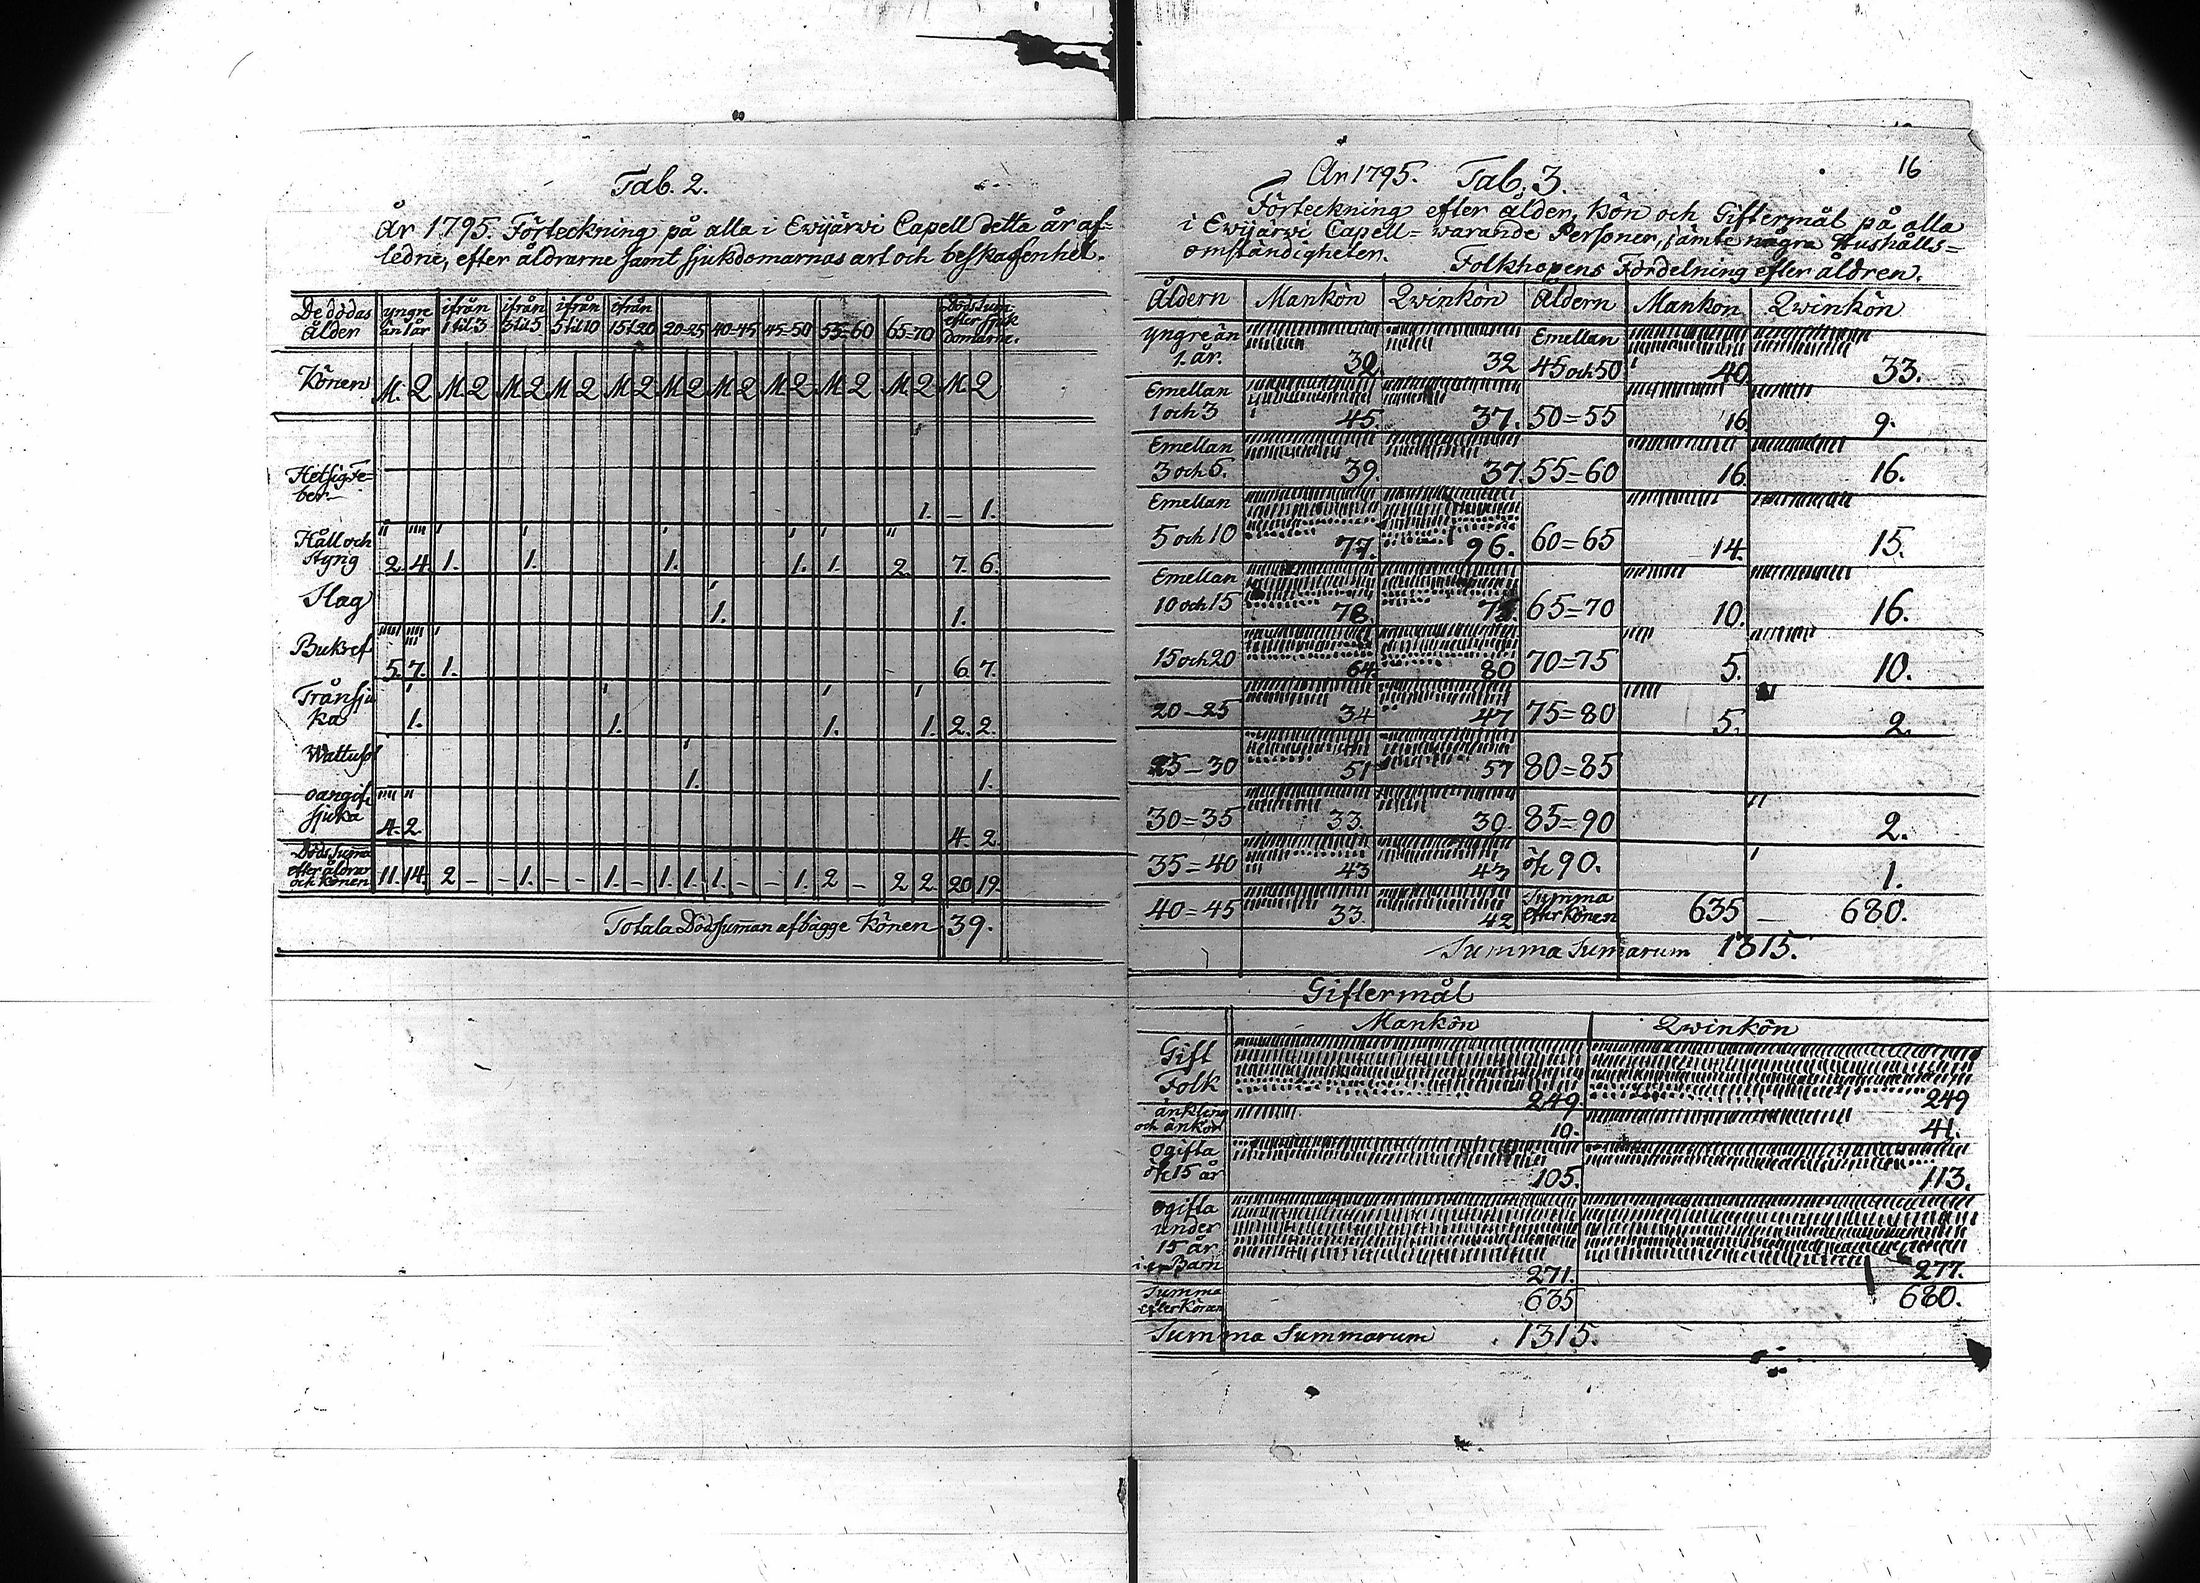 Tab. 2.
År 1795. Förteckning på alla i Ewijärwi Capell detta år af=
ledne, efter åldrarne samt sjukdomarnas art och beskaffenhet.
De dödas ålder yngre än 1 år ifrån 1 til 3 ifrån 3 til 5 ifrån 5 til 10 ifrån 15 t 20 20-25 40-45 45-50 55-60 65-70 Dödssum efter sjuk domarne.
Könen M. Q M. Q M. Q M. Q M. Q M. Q M. Q M. Q M. Q M. Q M. Q
Hetsig Fe=
ber 1. – 1.
Håll och
styng 2. 4. 1. 1. 1. 1. 1. 2. 7. 6.
Slag 1. 1.
Bukref 5. 7. 1. 6. 7.
Trånsju
ka 1. 1. 1. 1. 2. 2.
Wattusot 1. 1.
oangif.
sjuka 4. 2. 4. 2.
Döds Suma
efter åldrar
och Könen 11. 14. 2 – – 1. – – 1. – 1. 1. 1. – – 1. 2 – 2 2. 20 19.
Totala Dödssuman af bägge Könen 39.
16
År 1795. Tab. 3.
Förteckning efter ålder, Kön och Giftermål på alla
i Ewijärwi Capell= warande Personer, jämte några Hushålls=
omständigheter. Folkhopens Fördelning efter åldren.
Åldern Mankön Qwinkön Åldern Mankön Qwinkön
yngre än 1. år. 32. 32 Emellan 45 och 50 40. 33.
Emellan 1 och 3 45. 37. 50=55 16 9.
Emellan 3 och 5. 39. 37. 55=60 16. 16.
Emellan 5 och 10 77. 96. 60=65 14. 15.
Emellan 10 och 15 78. 65=70 10. 16.
15 och 20 64. 80 70=75 5. 10.
20-25 34 47 75=80 5. 2.
25-30 51 57 80=85
30=35 33. 30. 85=90 2.
35=40 43 43 öfr 90. 1.
40=45 33. 42 Summa efter Könen 635 – 680.
Summa Sumarum 1315.
Giftermål
Mankön Qwinkön
Gift
Folk 249. 249
änkling
och änkor 10. 41.
ogifta
öfr 15 år 105. 113.
ogifta
under
15 år
i.e. Barn 271. 277.
Summa
efter Könen 635 680.
Summa Summarum 1315.